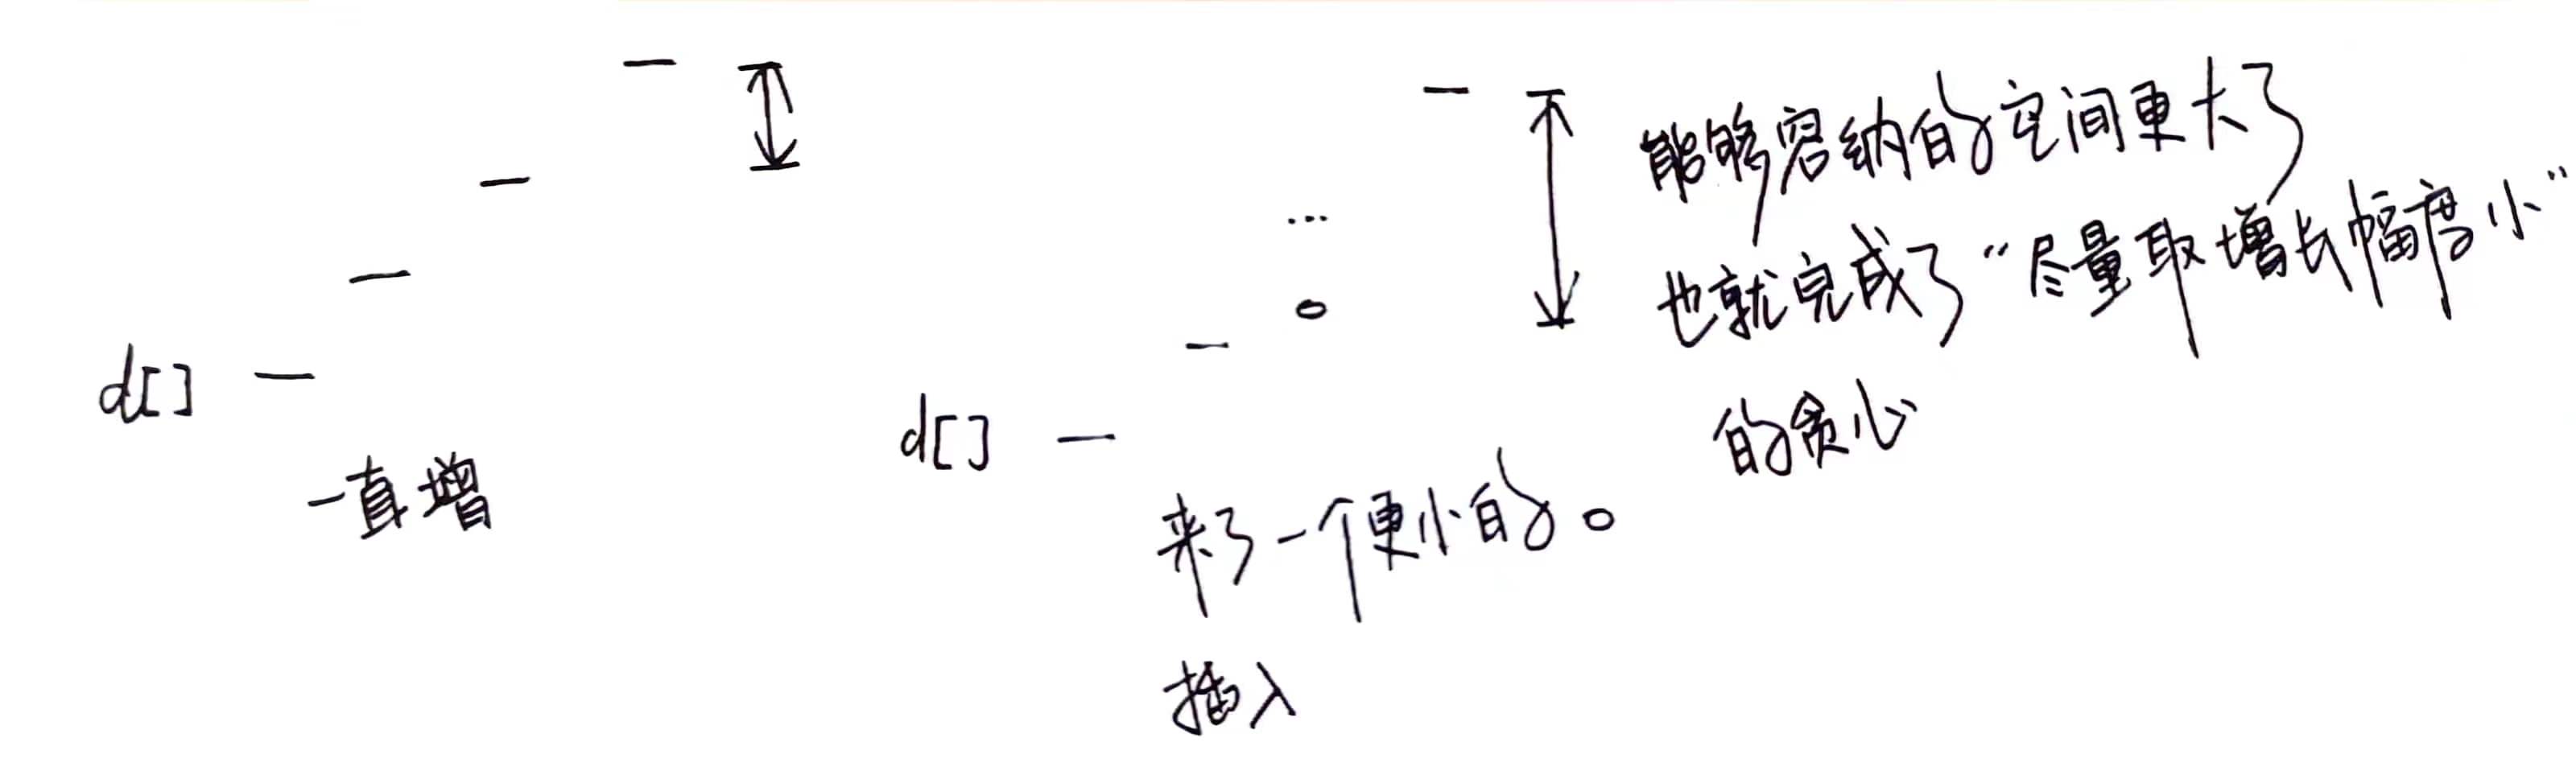 d[]
一直增
d[]
...
来了一个更小的。
插入
能够容纳的空间更大了
也就完成了“尽量取增长幅度小”
的贪心